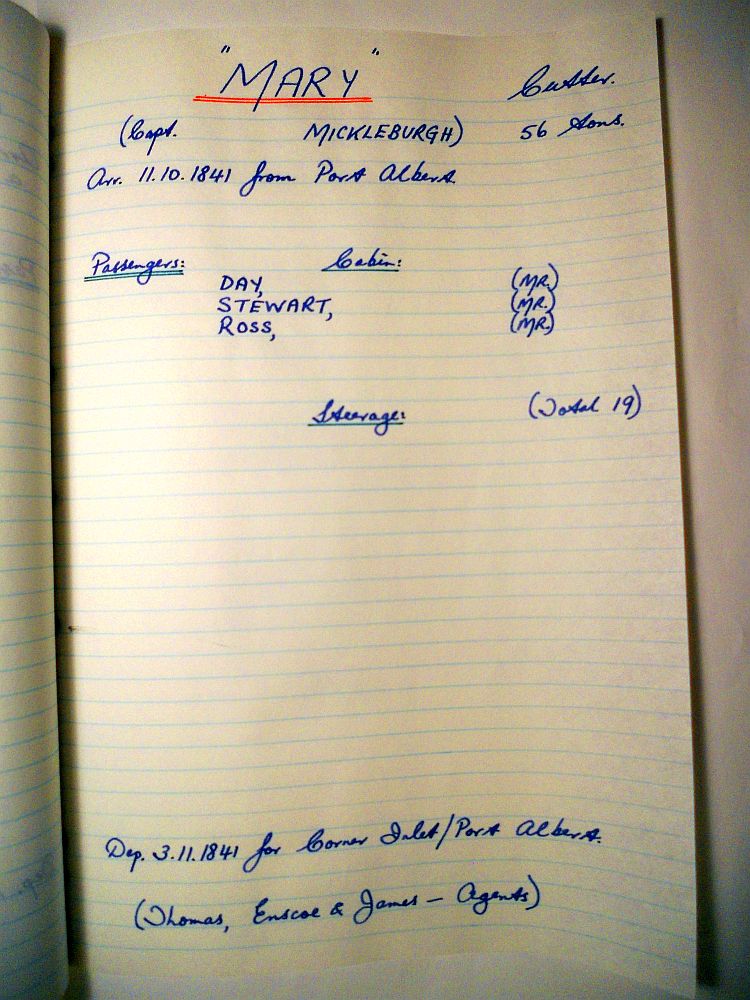 "MARY" Cutter.
(Capt. MICKLEBURGH) 56 tons.
Arr. 11.10.1841 from Port Albert
Passengers: Cabin:
DAY, (MR.)
STEWART, (MR.)
ROSS, (MR.)
Steerage: (Total 19)
Dep. 3.11.1841 for Corner Inlet/Port Albert.
(Thomas, Enscoe & James – Agents)